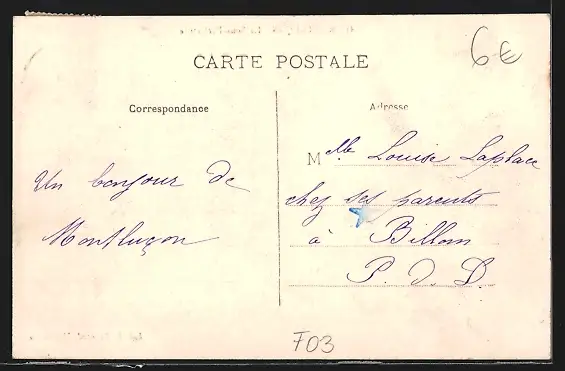 CARTE POSTALE
6€
Correspondance
Adresse
Un bonjour de
Montluçon
Mlle Louise Laplace
chez ses parents
à Billom
P. d. D.
F03